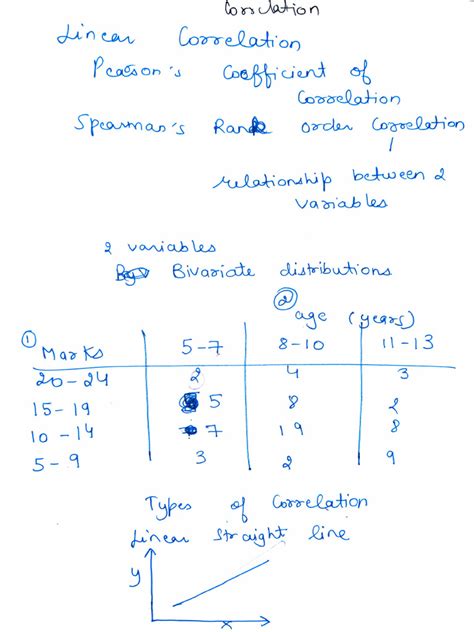 Correlation
Linear Correlation
Pearson's Coefficient of
Correlation
Spearman's Rank order Correlation
relationship between 2
variables
2 variables
Bivariate distributions
② age (years)
① Marks 5-7 8-10 11-13
20-24 2 4 3
15-19 5 8 2
10-14 7 19 8
5-9 3 2 9
Types of Correlation
Linear straight line
y
x